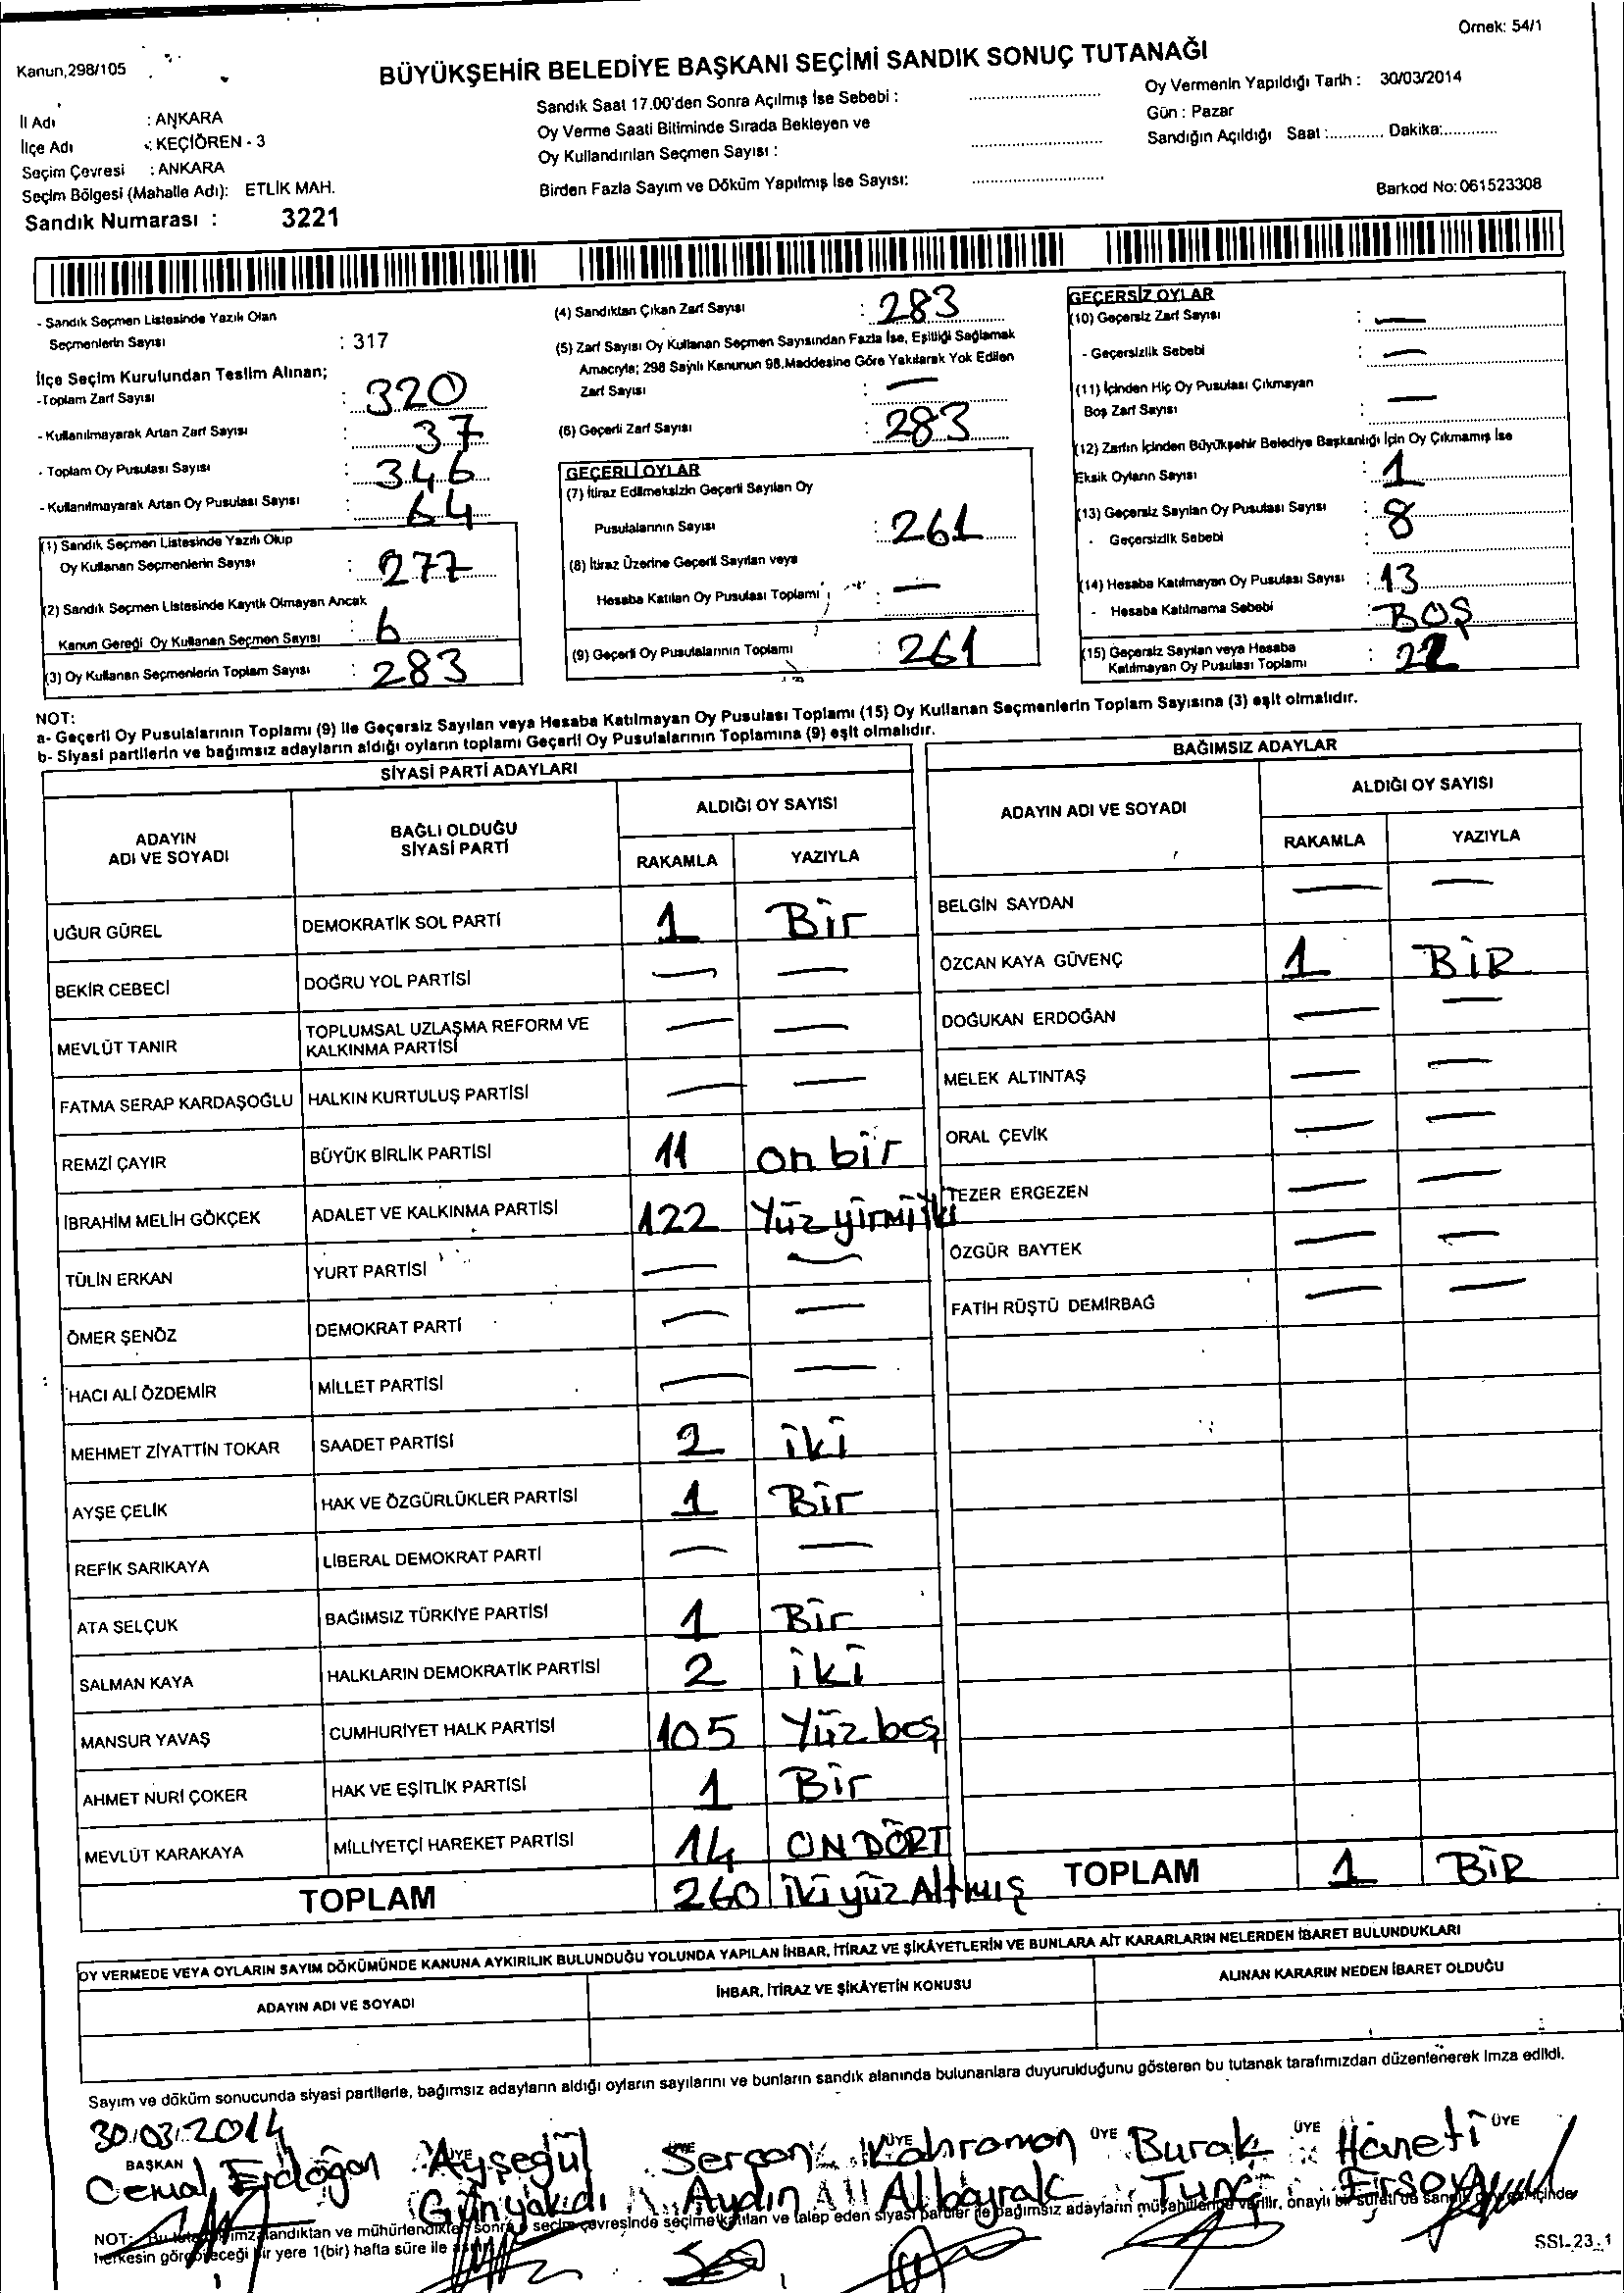 Örnek: 54/1
Kanun,298/105
BÜYÜKŞEHİR BELEDİYE BAŞKANI SEÇİMİ SANDIK SONUÇ TUTANAĞI
İl Adı : ANKARA
İlçe Adı : KEÇİÖREN - 3
Seçim Çevresi : ANKARA
Seçim Bölgesi (Mahalle Adı): ETLİK MAH.
Sandık Numarası : 3221
Sandık Saat 17.00'den Sonra Açılmış İse Sebebi :
Oy Verme Saati Bitiminde Sırada Bekleyen ve
Oy Kullandırılan Seçmen Sayısı :
Birden Fazla Sayım ve Döküm Yapılmış İse Sayısı:
Oy Vermenin Yapıldığı Tarih : 30/03/2014
Gün : Pazar
Sandığın Açıldığı Saat :............ Dakika:............
Barkod No: 061523308
- Sandık Seçmen Listesinde Yazılı Olan
Seçmenlerin Sayısı : 317
İlçe Seçim Kurulundan Teslim Alınan;
-Toplam Zarf Sayısı : 320
- Kullanılmayarak Artan Zarf Sayısı : 37
- Toplam Oy Pusulası Sayısı : 346
- Kullanılmayarak Artan Oy Pusulası Sayısı : 64
(1) Sandık Seçmen Listesinde Yazılı Olup
Oy Kullanan Seçmenlerin Sayısı : 277
(2) Sandık Seçmen Listesinde Kayıtlı Olmayan Ancak
Kanun Gereği Oy Kullanan Seçmen Sayısı : 6
(3) Oy Kullanan Seçmenlerin Toplam Sayısı : 283
(4) Sandıktan Çıkan Zarf Sayısı : 283
(5) Zarf Sayısı Oy Kullanan Seçmen Sayısından Fazla İse, Eşitliği Sağlamak
Amacıyla; 298 Sayılı Kanunun 98.Maddesine Göre Yakılarak Yok Edilen
Zarf Sayısı : —
(6) Geçerli Zarf Sayısı : 283
GEÇERLİ OYLAR
(7) İtiraz Edilmeksizin Geçerli Sayılan Oy
Pusulalarının Sayısı : 261
(8) İtiraz Üzerine Geçerli Sayılan veya
Hesaba Katılan Oy Pusulası Toplamı : —
(9) Geçerli Oy Pusulalarının Toplamı : 261
GEÇERSİZ OYLAR
(10) Geçersiz Zarf Sayısı : —
- Geçersizlik Sebebi : —
(11) İçinden Hiç Oy Pusulası Çıkmayan
Boş Zarf Sayısı : —
(12) Zarfın İçinden Büyükşehir Belediye Başkanlığı İçin Oy Çıkmamış İse
Eksik Oyların Sayısı : 1
(13) Geçersiz Sayılan Oy Pusulası Sayısı : 8
- Geçersizlik Sebebi :
(14) Hesaba Katılmayan Oy Pusulası Sayısı : 13
- Hesaba Katılmama Sebebi : BOŞ
(15) Geçersiz Sayılan veya Hesaba
Katılmayan Oy Pusulası Toplamı : 22
NOT:
a- Geçerli Oy Pusulalarının Toplamı (9) ile Geçersiz Sayılan veya Hesaba Katılmayan Oy Pusulası Toplamı (15) Oy Kullanan Seçmenlerin Toplam Sayısına (3) eşit olmalıdır.
b- Siyasi partilerin ve bağımsız adayların aldığı oyların toplamı Geçerli Oy Pusulalarının Toplamına (9) eşit olmalıdır.
SİYASİ PARTİ ADAYLARI
ADAYIN ADI VE SOYADI BAĞLI OLDUĞU SİYASİ PARTİ ALDIĞI OY SAYISI
RAKAMLA YAZIYLA
UĞUR GÜREL DEMOKRATİK SOL PARTİ 1 Bir
BEKİR CEBECİ DOĞRU YOL PARTİSİ — —
MEVLÜT TANIR TOPLUMSAL UZLAŞMA REFORM VE KALKINMA PARTİSİ — —
FATMA SERAP KARDAŞOĞLU HALKIN KURTULUŞ PARTİSİ — —
REMZİ ÇAYIR BÜYÜK BİRLİK PARTİSİ 11 on bir
İBRAHİM MELİH GÖKÇEK ADALET VE KALKINMA PARTİSİ 122 Yüz yirmi iki
TÜLİN ERKAN YURT PARTİSİ — —
ÖMER ŞENÖZ DEMOKRAT PARTİ — —
HACI ALİ ÖZDEMİR MİLLET PARTİSİ — —
MEHMET ZİYATTİN TOKAR SAADET PARTİSİ 2 iki
AYŞE ÇELİK HAK VE ÖZGÜRLÜKLER PARTİSİ 1 Bir
REFİK SARIKAYA LİBERAL DEMOKRAT PARTİ — —
ATA SELÇUK BAĞIMSIZ TÜRKİYE PARTİSİ 1 Bir
SALMAN KAYA HALKLARIN DEMOKRATİK PARTİSİ 2 iki
MANSUR YAVAŞ CUMHURİYET HALK PARTİSİ 105 Yüz beş
AHMET NURİ ÇOKER HAK VE EŞİTLİK PARTİSİ 1 Bir
MEVLÜT KARAKAYA MİLLİYETÇİ HAREKET PARTİSİ 14 ON DÖRT
TOPLAM 260 iki yüz Altmış
BAĞIMSIZ ADAYLAR
ADAYIN ADI VE SOYADI ALDIĞI OY SAYISI
RAKAMLA YAZIYLA
BELGİN SAYDAN — —
ÖZCAN KAYA GÜVENÇ 1 BİR
DOĞUKAN ERDOĞAN — —
MELEK ALTINTAŞ — —
ORAL ÇEVİK — —
TEZER ERGEZEN — —
ÖZGÜR BAYTEK — —
FATİH RÜŞTÜ DEMİRBAĞ — —
TOPLAM 1 BİR
OY VERMEDE VEYA OYLARIN SAYIM DÖKÜMÜNDE KANUNA AYKIRILIK BULUNDUĞU YOLUNDA YAPILAN İHBAR, İTİRAZ VE ŞİKÂYETLERİN VE BUNLARA AİT KARARLARIN NELERDEN İBARET BULUNDUKLARI
ADAYIN ADI VE SOYADI İHBAR, İTİRAZ VE ŞİKÂYETİN KONUSU ALINAN KARARIN NEDEN İBARET OLDUĞU
Sayım ve döküm sonucunda siyasi partilerle, bağımsız adayların aldığı oyların sayılarını ve bunların sandık alanında bulunanlara duyurulduğunu gösteren bu tutanak tarafımızdan düzenlenerek imza edildi.
30.03.2014
BAŞKAN ÜYE ÜYE ÜYE ÜYE ÜYE ÜYE
Cemal Erdoğan Ayşegül Sercan Kahraman Burak Haneti
Günyakdı Aydın Ali Albayrak Tunç Ersoy
NOT: Bu imzalandıktan ve mühürlendikten sonra seçim çevresinde seçime katılan ve talep eden siyasi partiler ile bağımsız adayların müşahitlerine verilir, onaylı bir sureti de içinde
herkesin görebileceği bir yere 1(bir) hafta süre ile
SSI-23_1